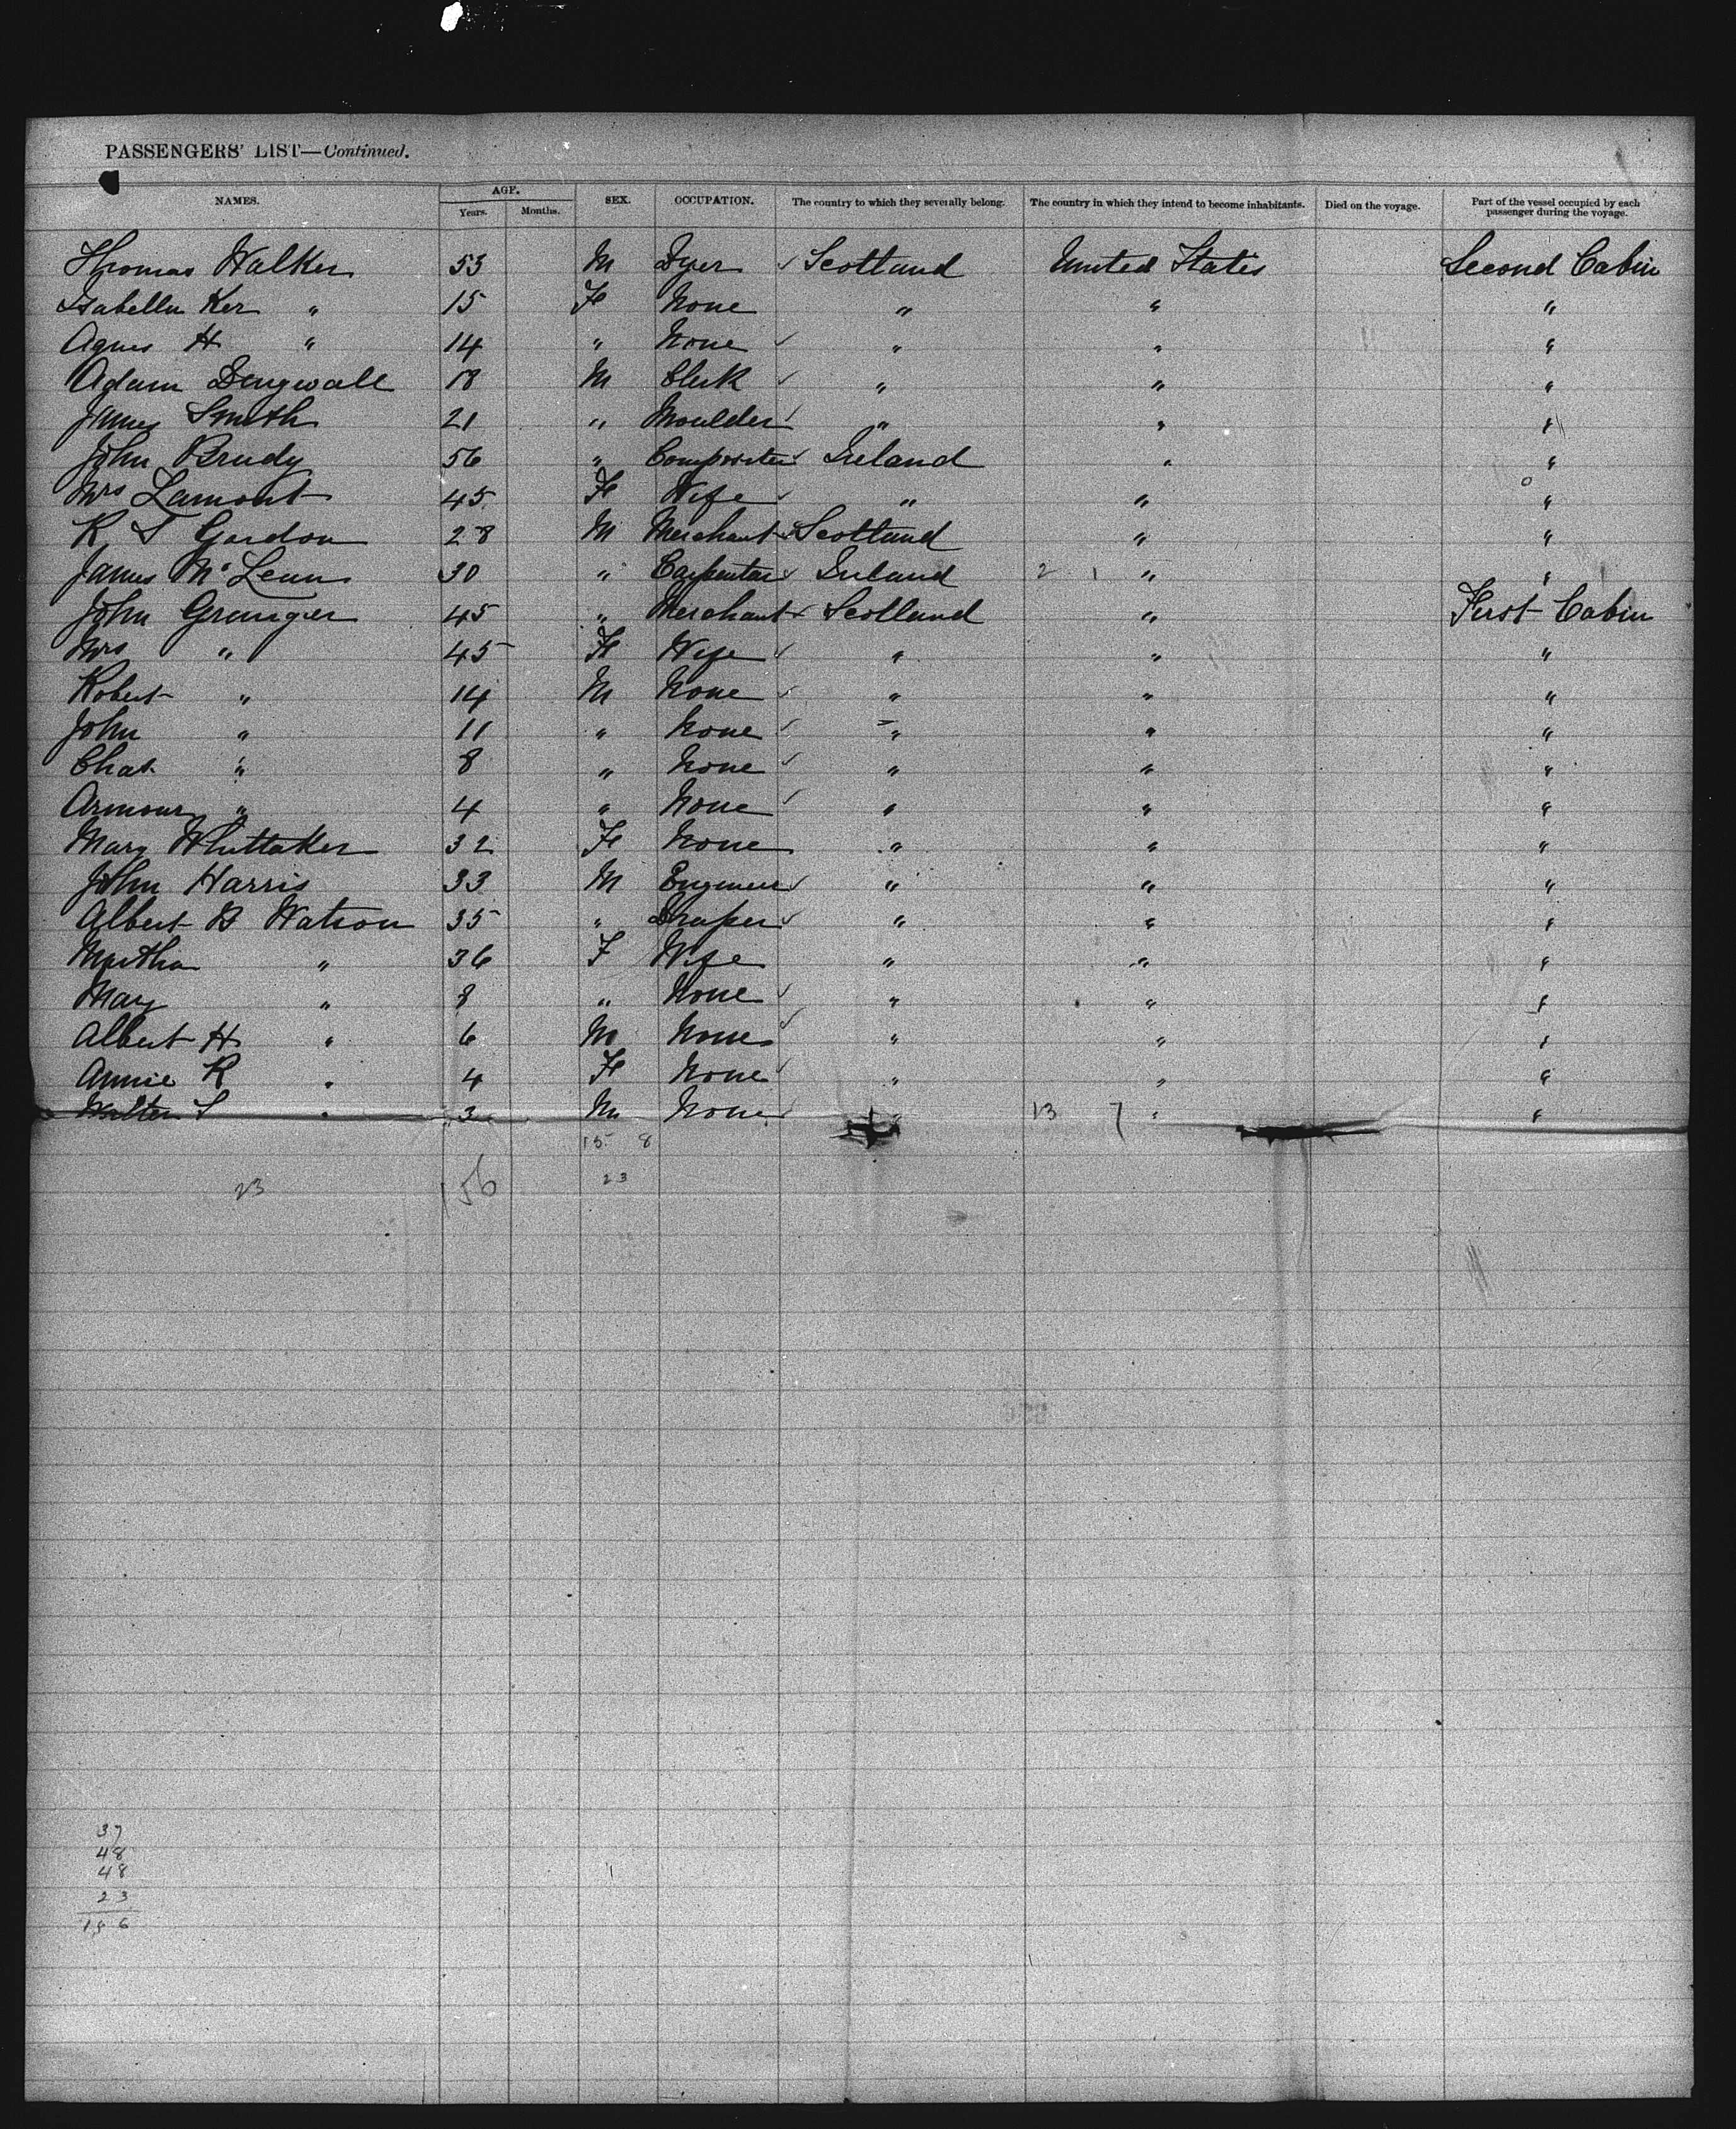 PASSENGERS' LIST—Continued.
NAMES. AGE. Years. Months. SEX. OCCUPATION. The country to which they severally belong. The country in which they intend to become inhabitants. Died on the voyage. Part of the vessel occupied by each passenger during the voyage.
Thomas Walker 53 M Dyer ✓ Scotland United States Second Cabin
Isabella Ker " 15 F None " " "
Agnes H " 14 " None ✓ " " "
Adam Dingwall 18 M Clerk ✓ " " "
James Smith 21 " Moulder ✓ " " "
John Brudy 56 " Compositer ✓ Ireland " "
Mrs Lamont 45 F Wife ✓ " " "
R S Gordon 28 M Merchant ✓ Scotland " "
James Mc 30 " Carpenter ✓ Ireland 2 1 " "
John Grangier 45 " Merchant ✓ Scotland " First Cabin
Mrs " 45 F Wife ✓ " " "
Robert " 14 M None ✓ " " "
John " 11 " None ✓ " " "
Chas " 8 " None ✓ " " "
Armour " 4 " None ✓ " " "
Mary Whittaker 32 F None " " "
John Harris 33 M Engineer ✓ " " "
Albert B Watson 35 " Draper ✓ " " "
Martha " 36 F Wife " " "
Mary " 8 " None ✓ " " "
Albert H " 6 M None ✓ " " "
Annie R " 4 F None ✓ " " "
Walter S " 3 M None ✓ " 13 7 " "
15 8
23 156 23
37
48
48
23
156